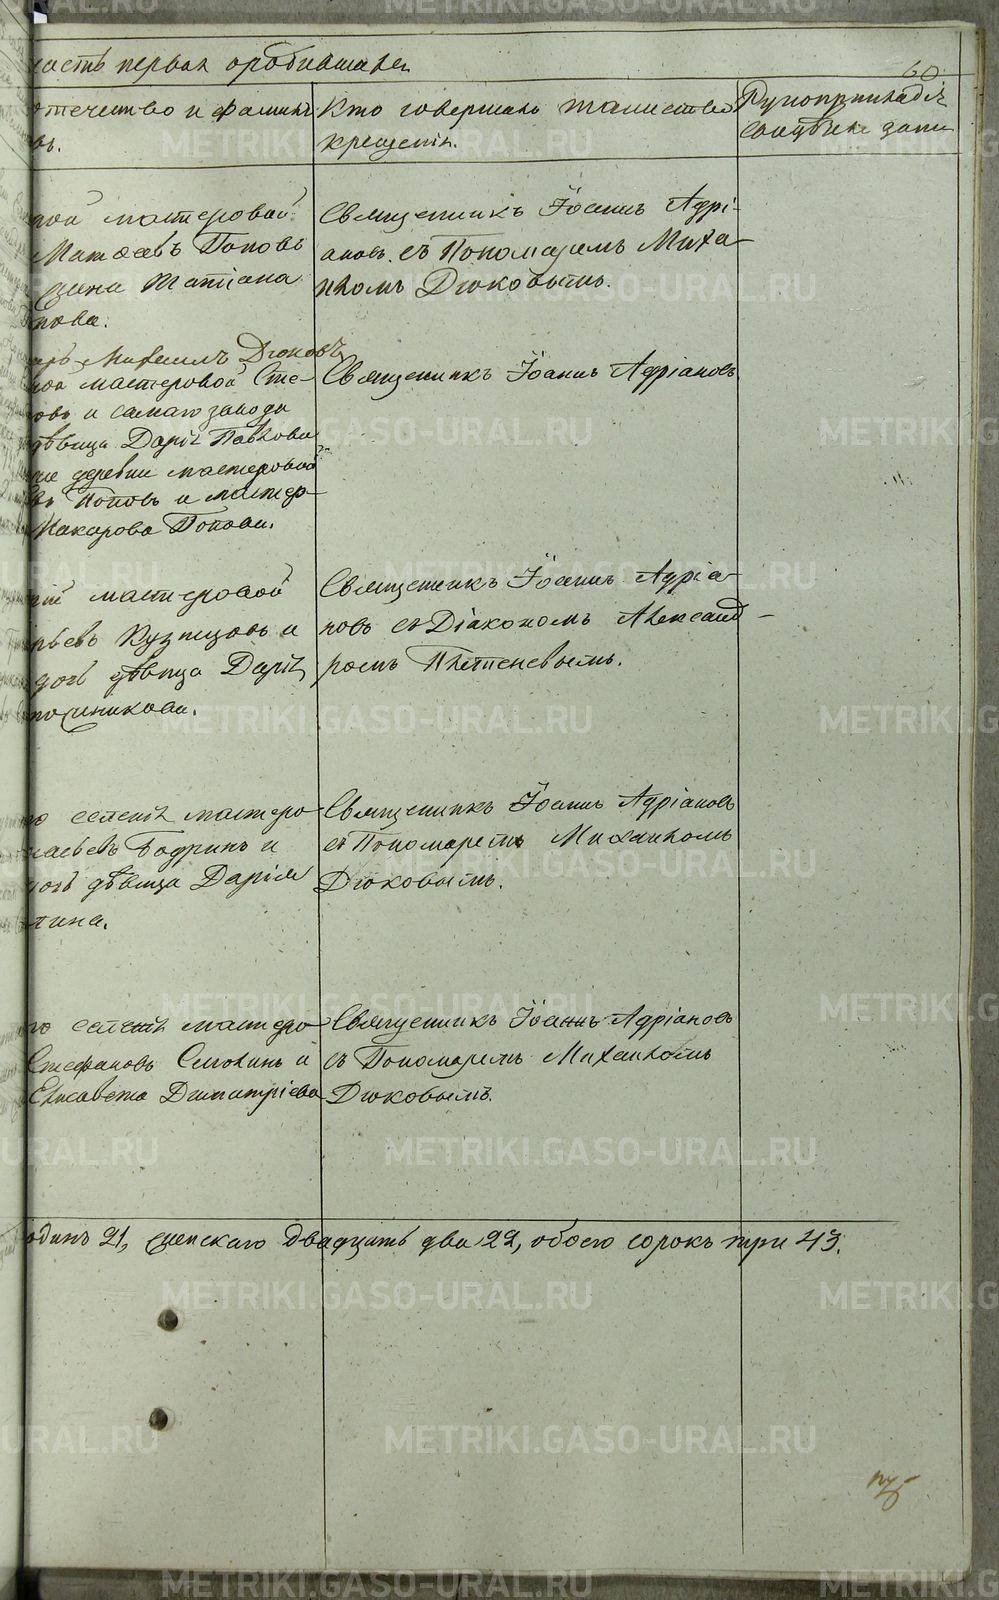 часть первая о родившихся
60
отечество и фамилія
Кто совершалъ таинство
крещенія.
Рукоприкладст
свидѣтел запи
мастеровой
Матѳеевъ Поповъ
жена Татіана
пова.
Священникъ Іоаннъ Адрі-
ановъ съ Пономаремъ Миха-
иломъ Дюковымъ.
Михаилъ Дюковъ
мастеровой Сте-
и самаго завода
дѣвица Дарія Павлова
деревни мастеровой
въ Поповъ и мастер-
Макарова Попова.
Священникъ Іоаннъ Адріановъ
мастеровой
Кузнецовъ и
дочь дѣвица Дарія
Священникъ Іоаннъ Адріа-
новъ съ Діакономъ Александ-
ромъ Плетеневымъ.
го селенія мастеро-
Бодринъ и
дочь дѣвица Дарія
Священникъ Іоаннъ Адріановъ
съ Пономаремъ Михаиломъ
Дюковымъ.
го селенія мастеро-
Стефановъ и
Елисавета Димитріева
Священникъ Іоаннъ Адріановъ
съ Пономаремъ Михаиломъ
Дюковымъ.
одинъ 21, женскаго двадцать два 22, обоего сорокъ три 43.
METRIKI.GASO-URAL.RU